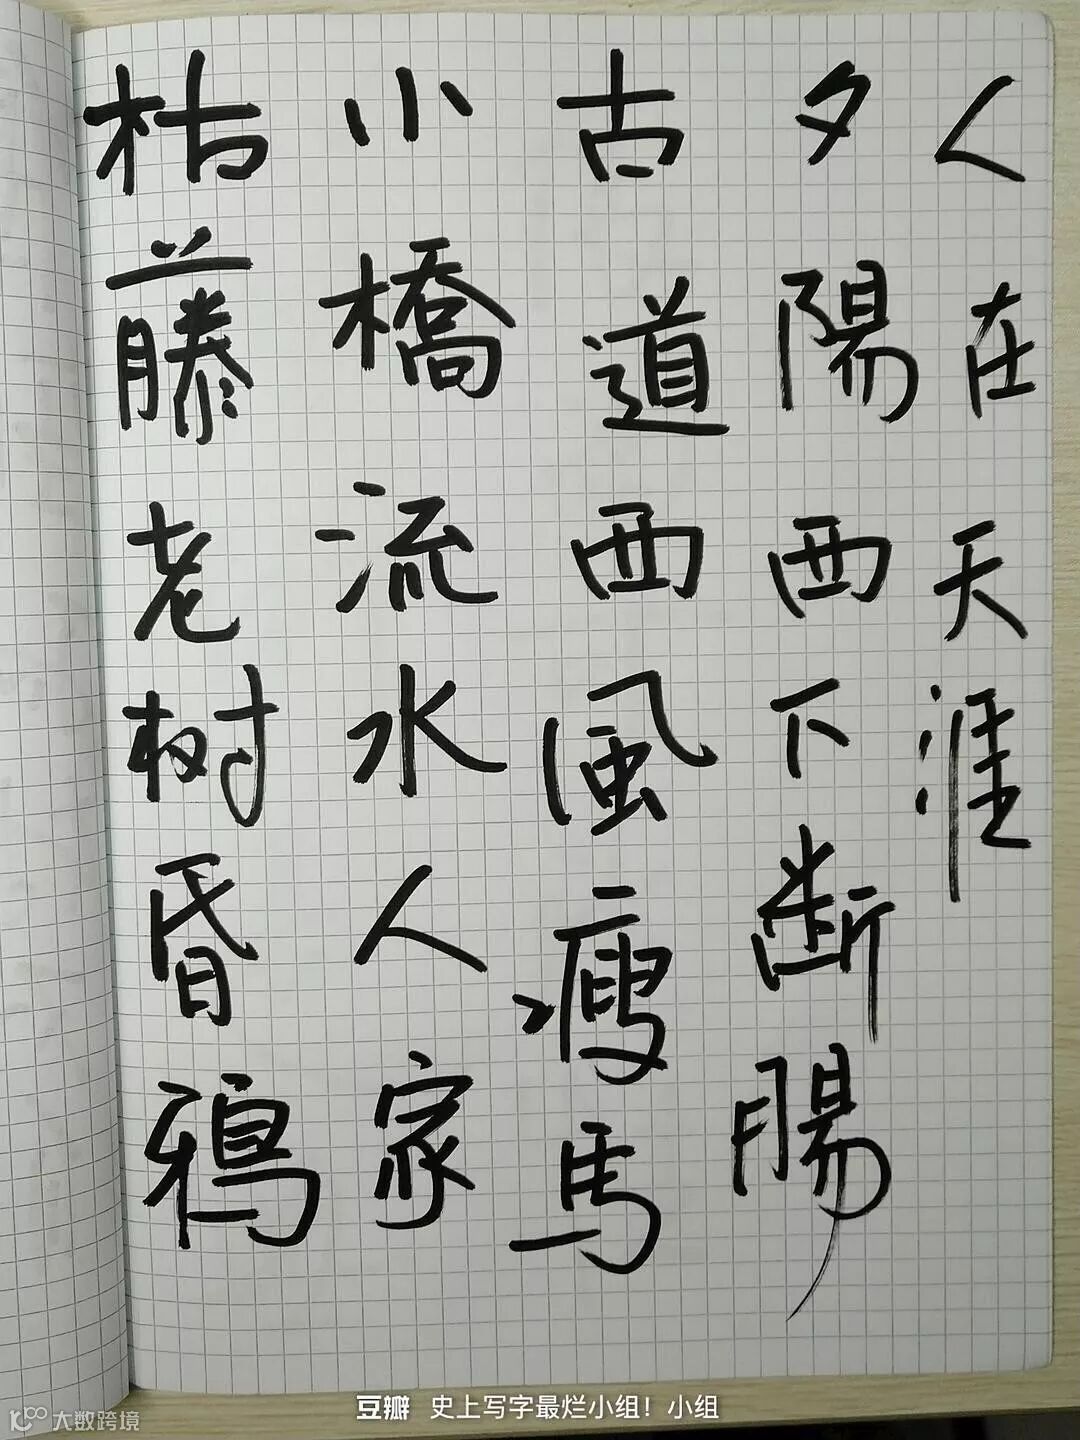 枯藤老树昏鸦
小橋流水人家
古道西風瘦马
夕陽西下断腸
人在天涯
豆瓣 史上写字最烂小组！小组
大数跨境